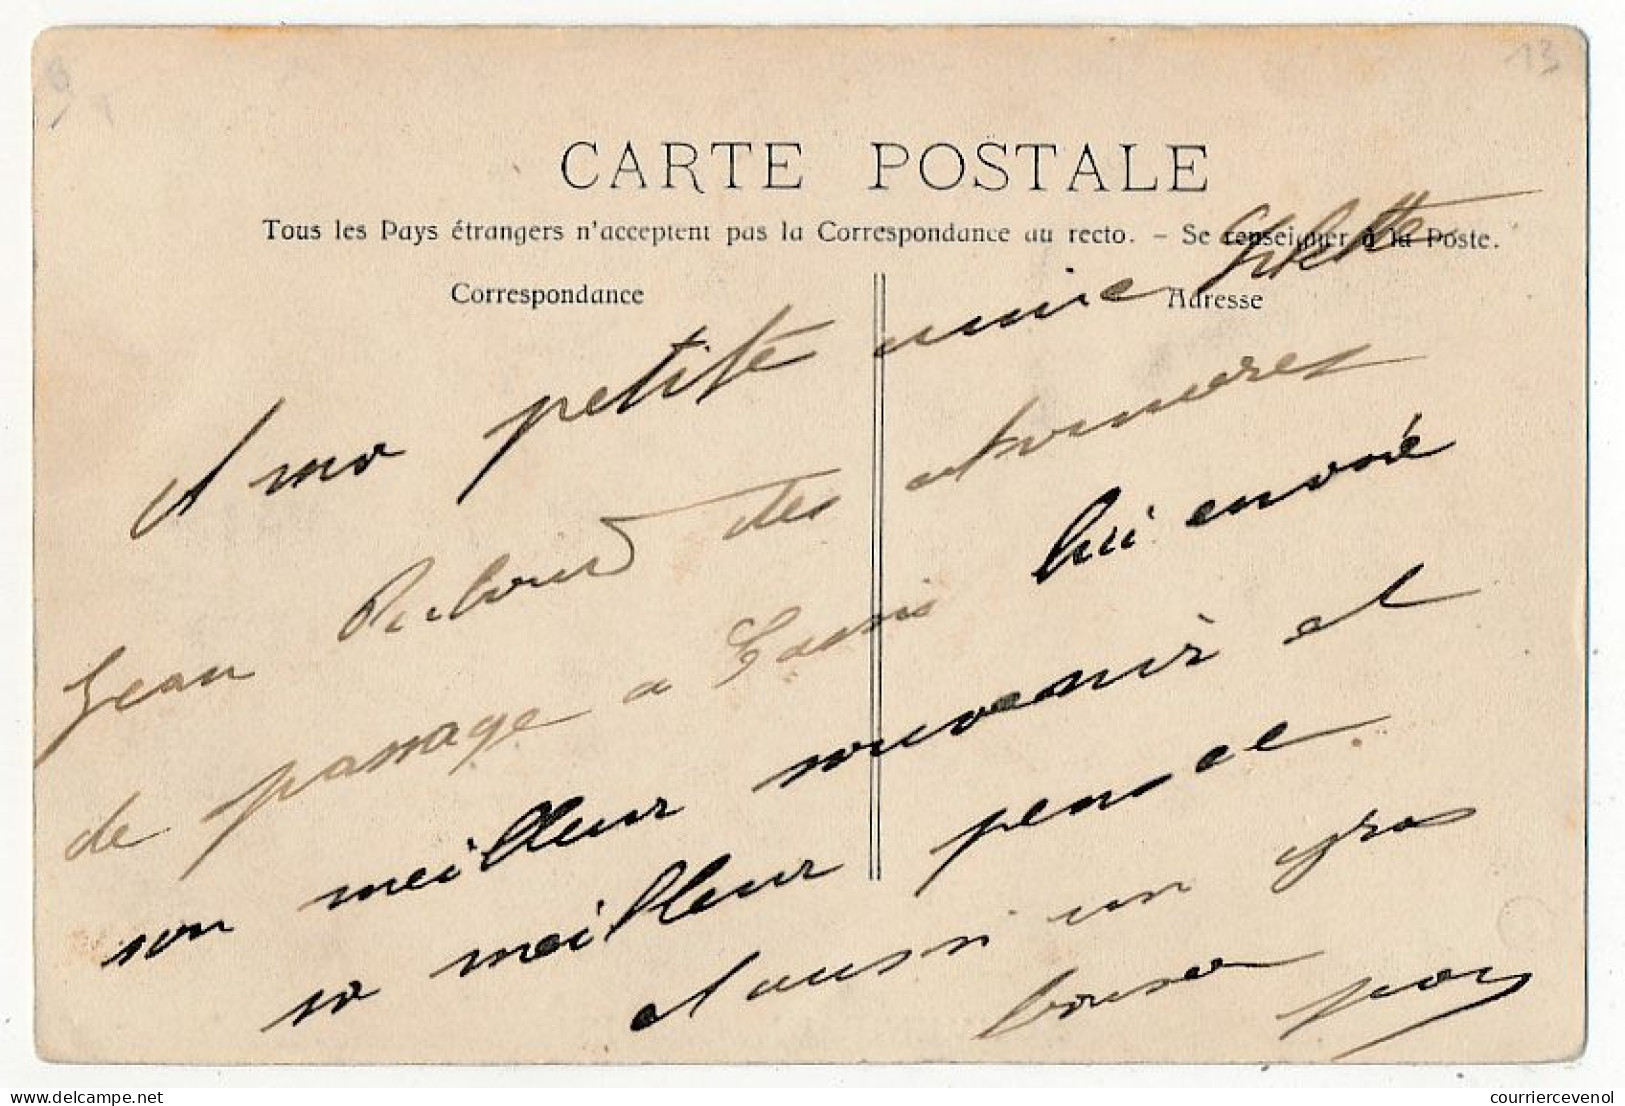 13
CARTE POSTALE
Tous les Pays étrangers n'acceptent pas la Correspondance au recto. – Se renseigner à la Poste.
Correspondance
Adresse
A ma petite amie
Jean des
de passage a Cassis lui envoie
son meilleur souvenir et
sa meilleur pensee
et aussi un gros
baiser
courriercevenol